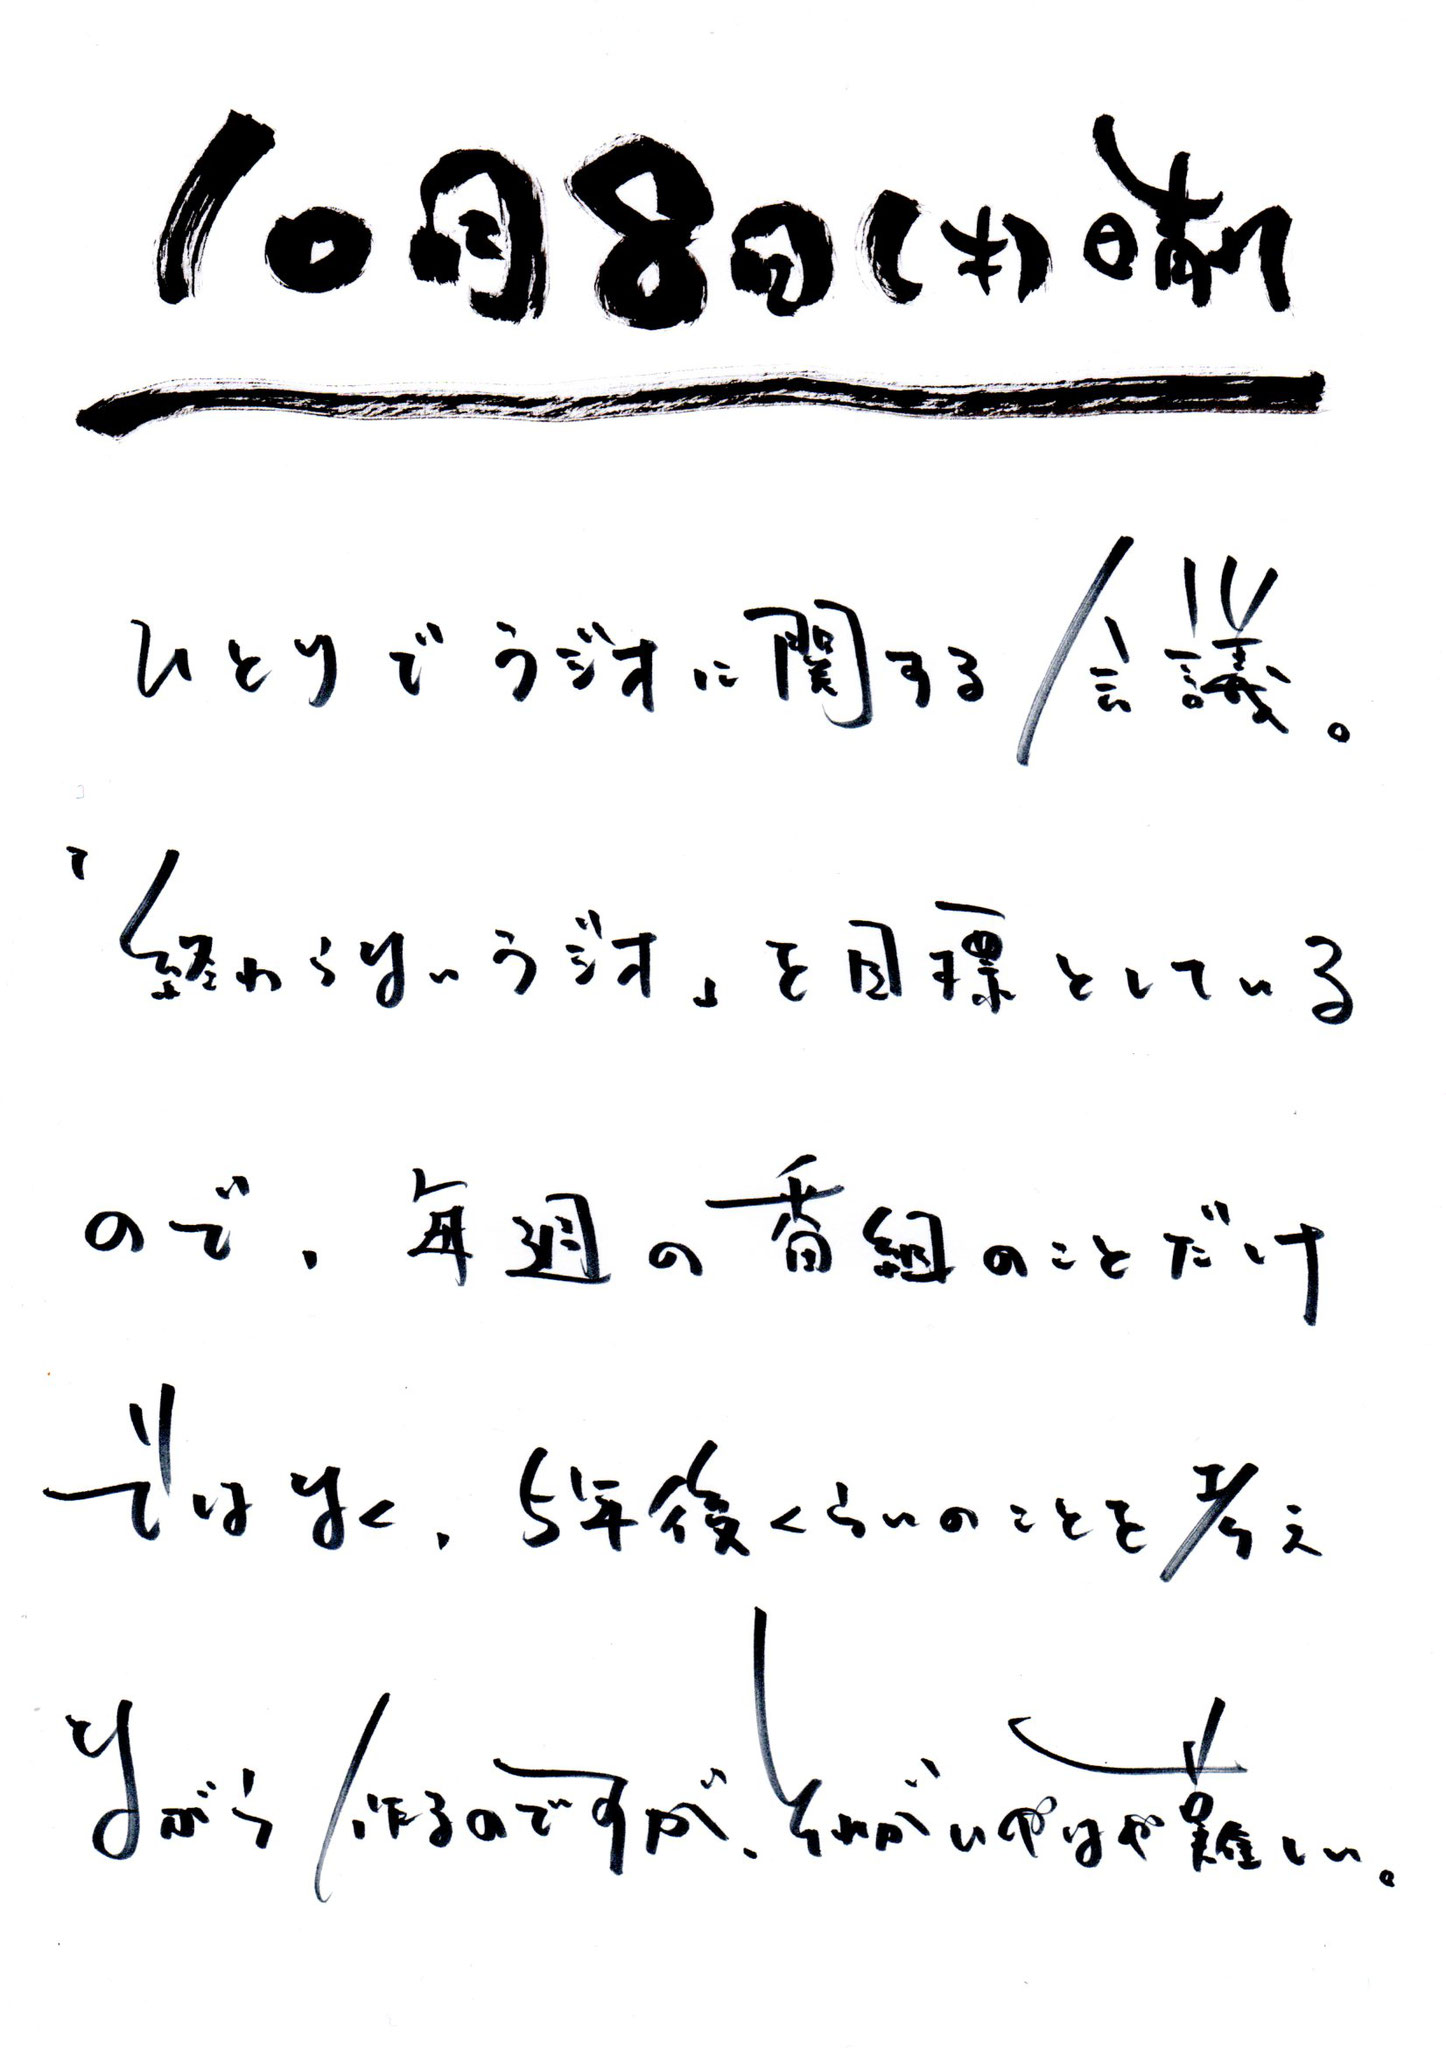 10月8日(木)晴れ
ひとりでラジオに関する会議。
「終わらないラジオ」を目標としている
ので、毎週の番組のことだけ
ではなく、5年後くらいのことを考え
ながら作るのですが、それがいやはや難しい。